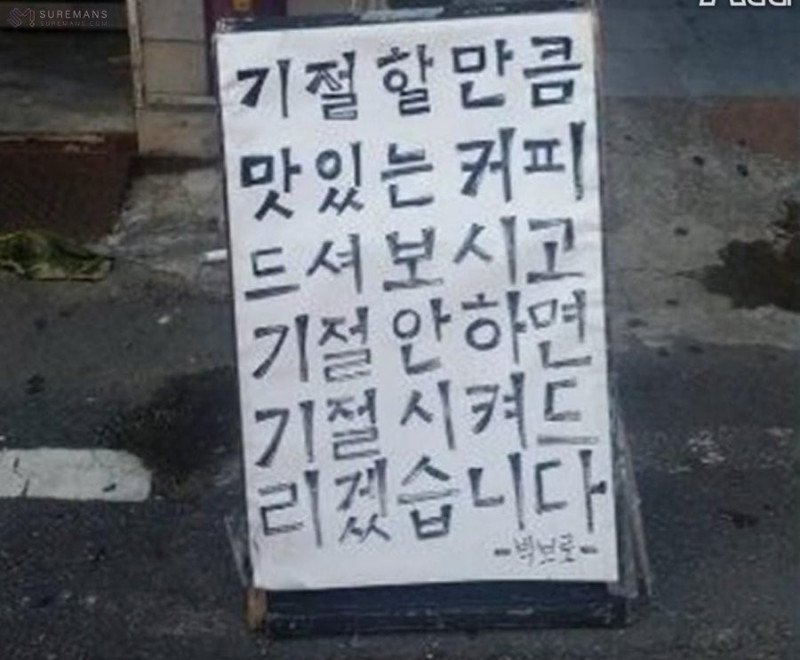 SUREMANS
SUREMANS.COM
기절할만큼
맛있는커피
드셔보시고
기절안하면
기절시켜드
리겠습니다